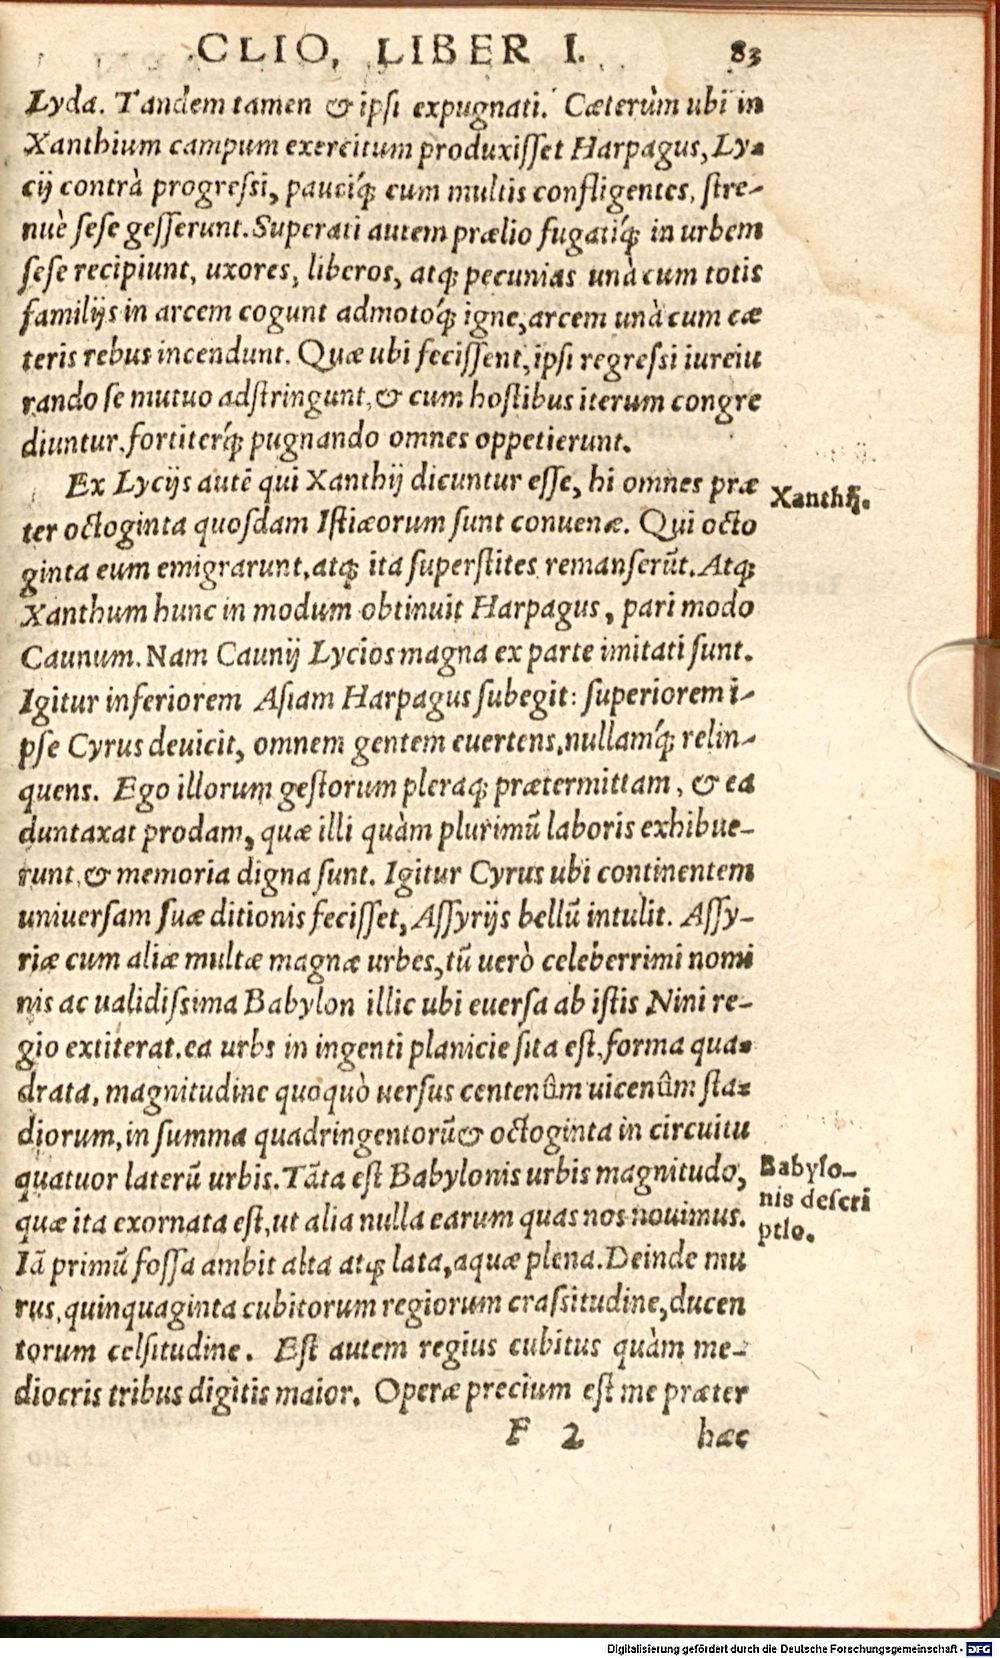 CLIO, LIBER I. 83
Lyda. Tandem tamen & ipsi expugnati. Cæterùm ubi in
Xanthium campum exercitum produxisset Harpagus, Ly-
cij contrà progressi, pauciq́; cum multis confligentes, stre-
nuè sese gesserunt. Superati autem prælio fugatiq́; in urbem
sese recipiunt, uxores, liberos, atq; pecunias unà cum totis
familijs in arcem cogunt admotoq́; igne, arcem unà cum cæ
teris rebus incendunt. Quæ ubi fecissent, ipsi regressi iureiu
rando se mutuo adstringunt, & cum hostibus iterum congre
diuntur, fortiterq́; pugnando omnes oppetierunt.
Ex Lycijs autē qui Xanthij dicuntur esse, hi omnes præ
Xanthij.
ter octoginta quosdam Istiæorum sunt conuenæ. Qui octo
ginta eum emigrarunt, atq; ita superstites remanserūt. Atq;
Xanthum hunc in modum obtinuit Harpagus, pari modo
Caunum. Nam Caunij Lycios magna ex parte imitati sunt.
Igitur inferiorem Asiam Harpagus subegit: superiorem i-
pse Cyrus deuicit, omnem gentem euertens, nullamq́; relin-
quens. Ego illorum gestorum pleraq; prætermittam, & ea
duntaxat prodam, quæ illi quàm plurimū laboris exhibue-
runt, & memoria digna sunt. Igitur Cyrus ubi continentem
uniuersam suæ ditionis fecisset, Assyrijs bellū intulit. Assy-
riæ cum aliæ multæ magnæ urbes, tū uerò celeberrimi nomi
nis ac ualidissima Babylon illic ubi euersa ab istis Nini re-
gio extiterat. ea urbs in ingenti planicie sita est, forma qua-
drata, magnitudine quoquò uersus centenûm uicenûm sta-
diorum, in summa quadringentorū & octoginta in circuitu
quatuor laterū urbis. Tāta est Babylonis urbis magnitudo,
Babylo-
nis descri
ptio.
quæ ita exornata est, ut alia nulla earum quas nos nouimus.
Iā primū fossa ambit alta atq; lata, aquæ plena. Deinde mu
rus, quinquaginta cubitorum regiorum crassitudine, ducen
torum celsitudine. Est autem regius cubitus quàm me-
diocris tribus digitis maior. Operæ precium est me præter
F 2 hæc
Digitalisierung gefördert durch die Deutsche Forschungsgemeinschaft - DFG